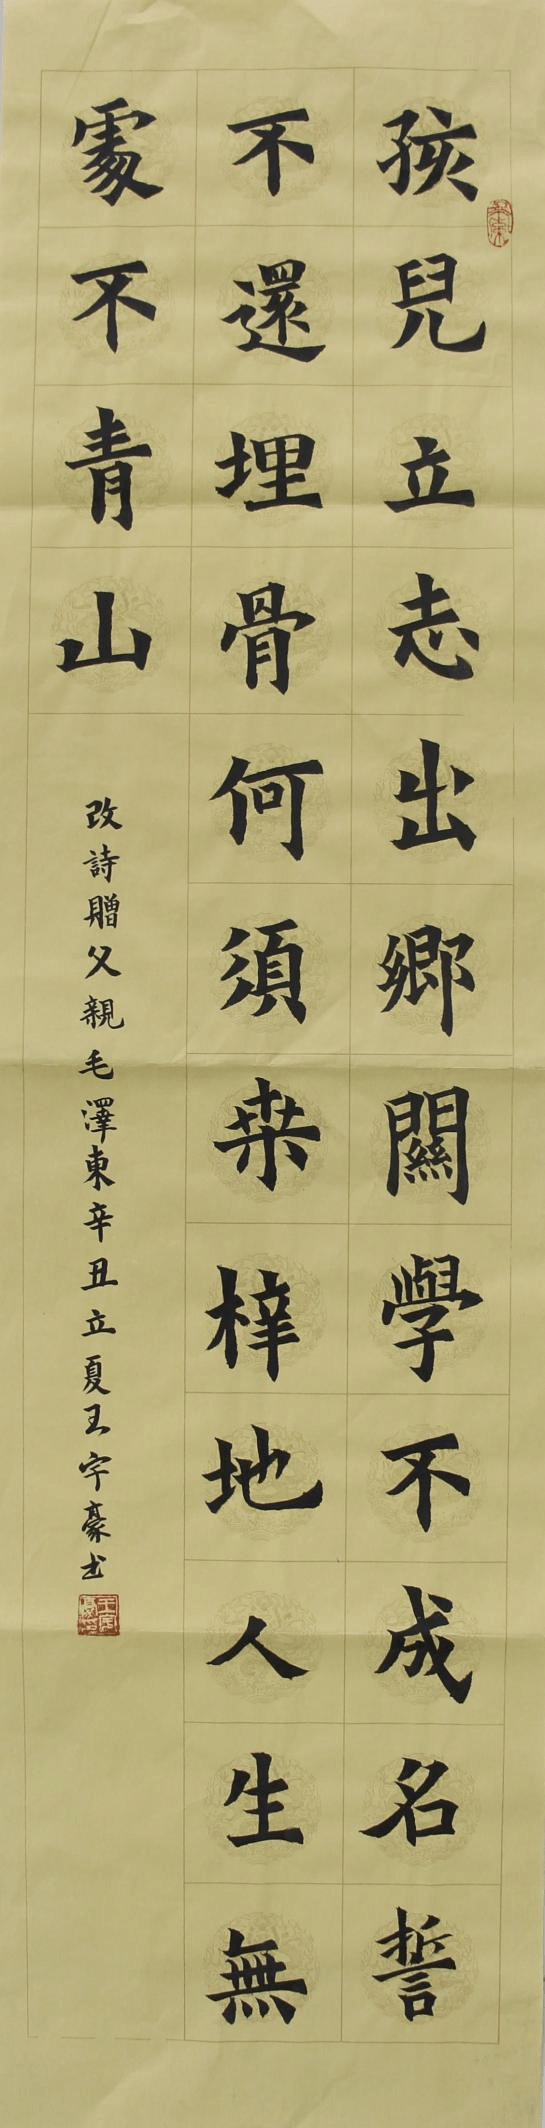 孩兒立志出鄉關學不成名誓
不還埋骨何須桒梓地人生無
處不青山
改詩贈父親毛澤東辛丑立夏王宇豪书